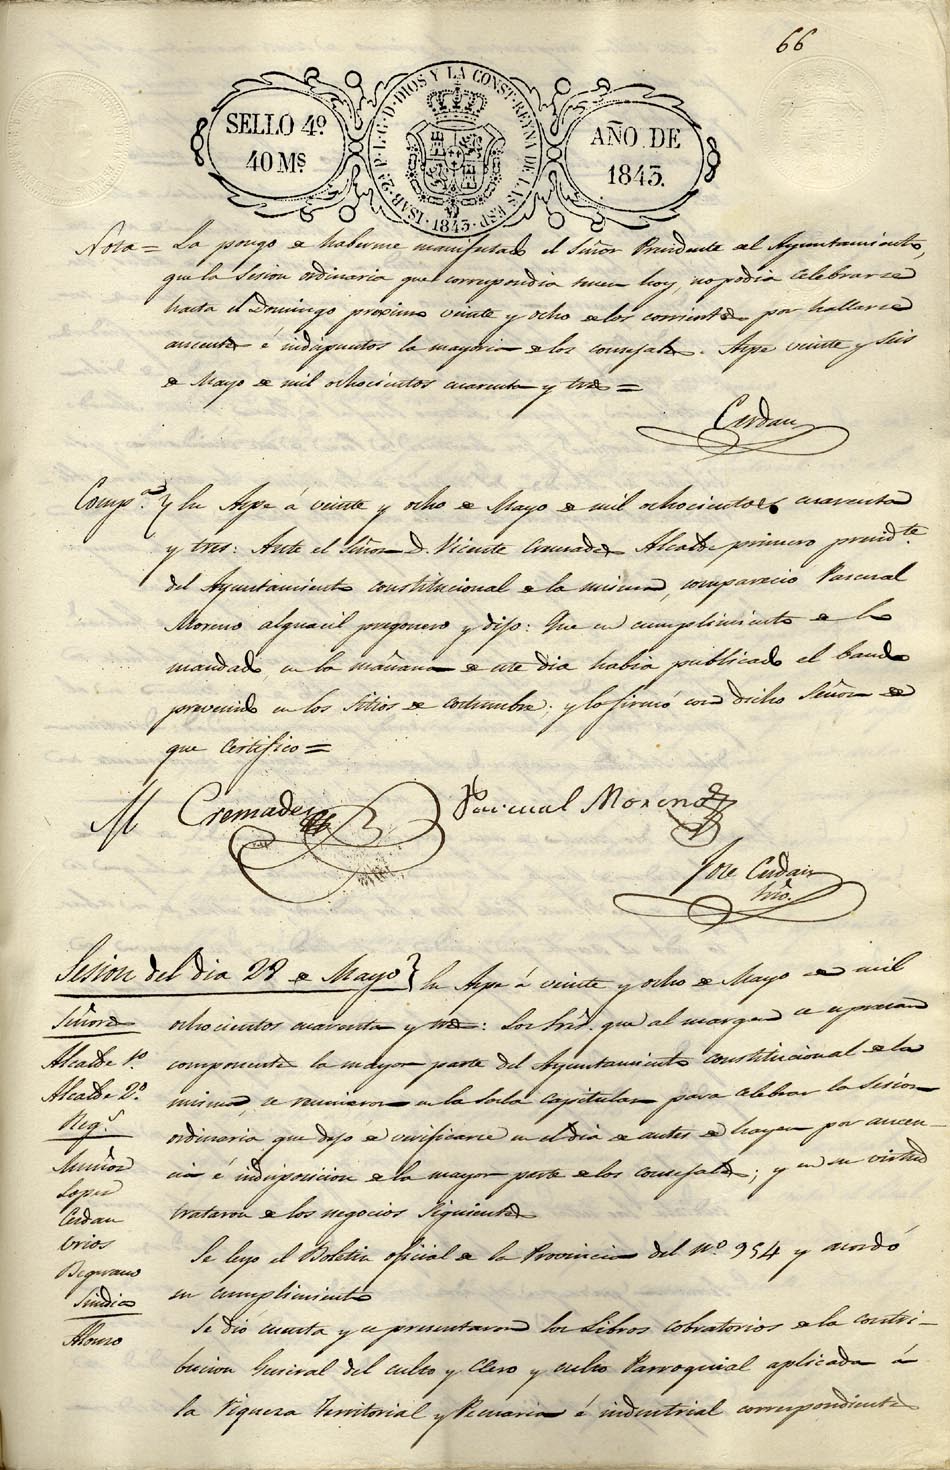 66
SELLO 4º
40 Ms.
ISAB. 2ª P. L. G. D. DIOS Y LA CONST. REYNA DE LAS ESP.
1843
AÑO DE
1843.
Nota = La pongo de haberme manifestado el Señor Presidente del Ayuntamiento,
que la Sesion ordinaria que correspondia tener hoy, no podia celebrarse
hasta el Domingo proximo veinte y ocho de los corrientes por hallarse
ausentes é indispuestos la mayoria de los consejales. Aspe veinte y seis
de Mayo de mil ochocientos cuarenta y tres =
Cerdan
Compª. } En Aspe á veinte y ocho de Mayo de mil ochocientos cuarenta
y tres: Ante el Señor D. Vicente Cremades Alcalde primero presidte.
del Ayuntamiento constitucional de la misma, comparecio Pascual
Moreno alguacil pregonero y dijo: Que en cumplimiento de lo
mandado, en la mañana de este dia habia publicado el bando
prevenido en los Sitios de costumbre; y lo firmó con dicho Señor de
que certifico =
M Cremades Pascual Moreno
Jose Cerdan
Srio.
Sesion del dia 28 de Mayo } En Aspe á veinte y ocho de Mayo de mil
Señores ochocientos cuarenta y tres: Los Sres. que al margen se espresan
Alcalde 1º. componentes la mayor parte del Ayuntamiento constitucional de la
Alcalde 2º. misma, se reunieron en la Sala capitular para celebrar la Sesion
Regs. ordinaria que dejó de verificarse en el dia de antes de hayer por ausen-
Muñoz cia é indisposicion de la mayor parte de los consejales; y en su virtud
Lopez trataron de los negocios siguientes
Cerdan
Orios Se leyo el Boletin oficial de la Provincia del nº. 954 y acordó
Beguano su cumplimiento
Sindico Se dio cuenta y se presentaron los Libros cobratorios de la contri-
Alonso bucion General del culto y Clero y culto Parroquial aplicada á
la Riqueza Territorial y Pecuaria é industrial correspondientes